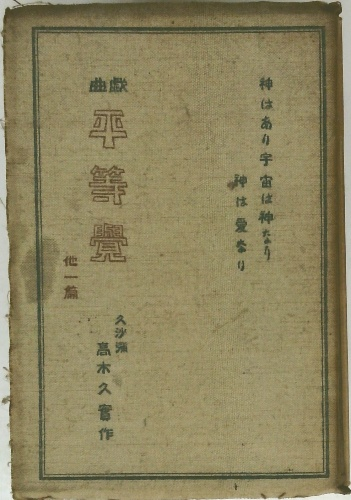 神はあり宇宙は神なり
神は愛なり
戯曲
平等覺
他一篇
久沙彌
高木久實作